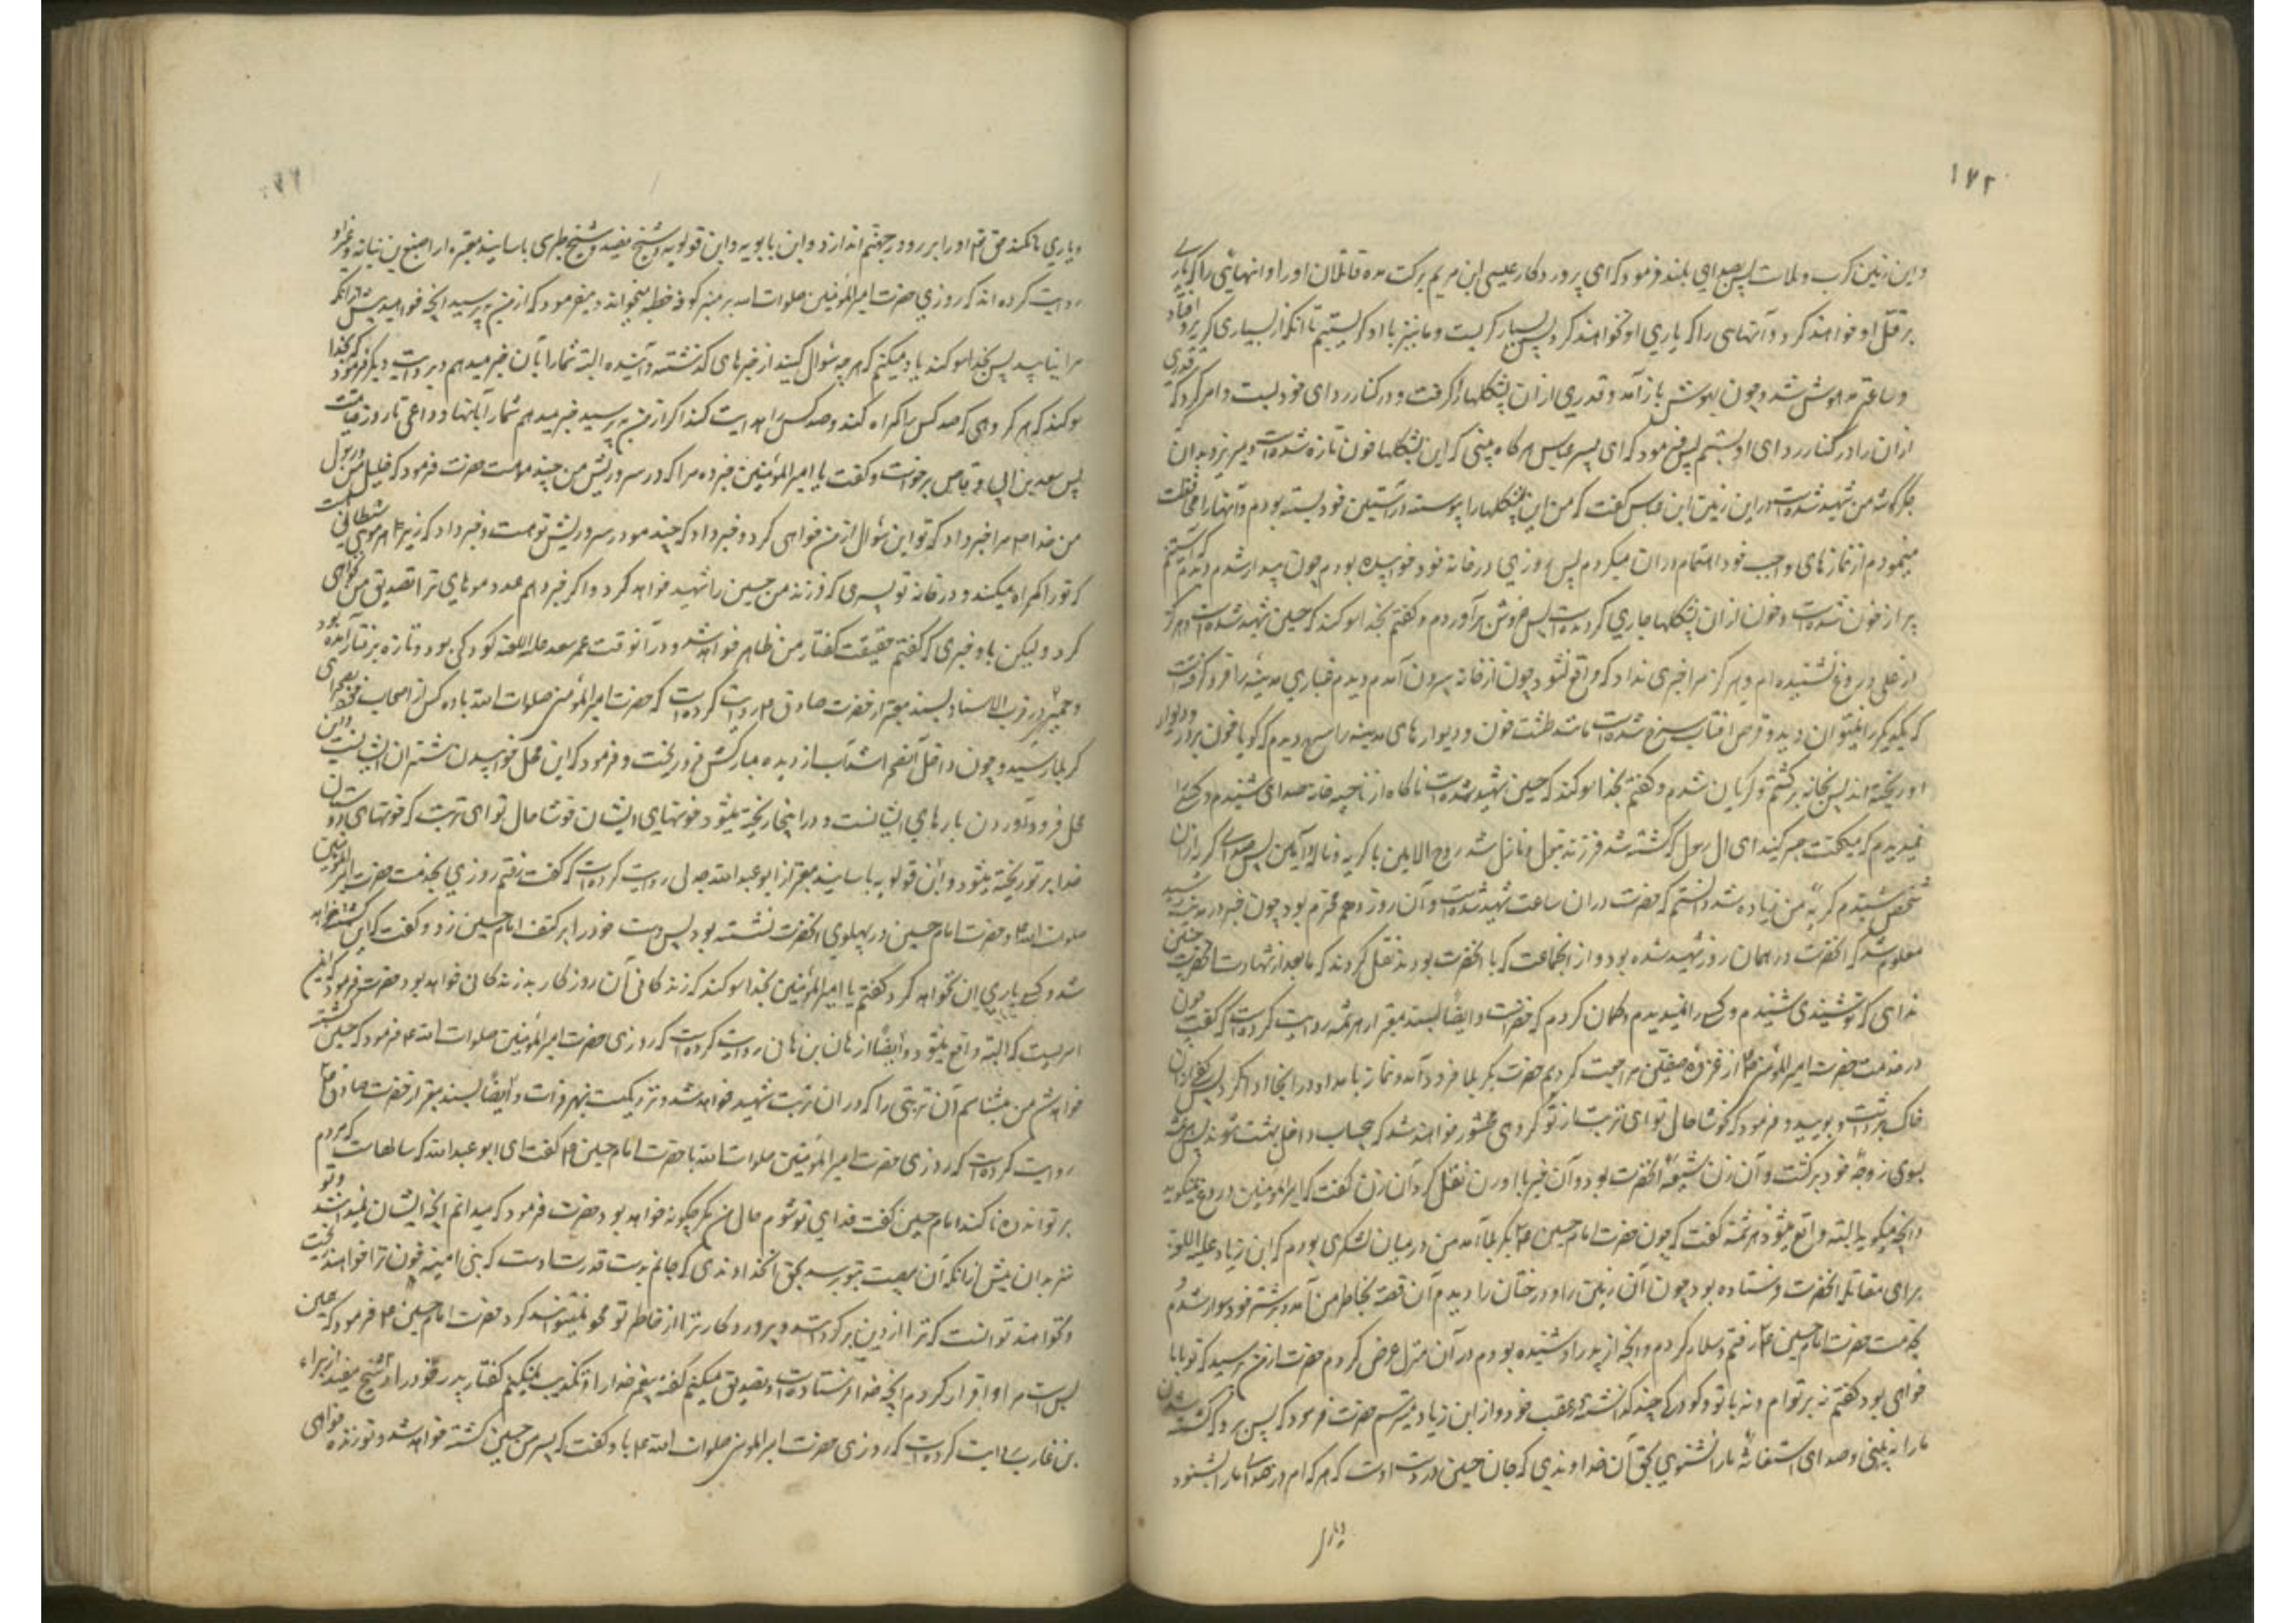 ۱۷۲
و این زمین کرب و بلاست پس بصدای بلند فرمود که ای پروردگار عیسی ابن مریم برکت مده قاتلان او را و انهائی را که یاری
بر قتل او خواهند کرد و آنهای را که یاری او نخواهند کرد پس بسیار گریست و ما نیز با او گریستیم تا آنکه از بسیاری گریه بر رو افتاد
و ساعتی مدهوش شد و چون بهوش باز آمد و قدری از ان پشکلها را گرفت و در کنار ردای خود بست و امر کرد که قدری
ازان را در کنار ردای او بستم پس فرمود که ای پسر عباس هرگاه بینی که این پشکلها خون تازه شده است و میریزد بدان
جگرگوشه من شهید شده است در این زمین ابن عباس گفت که من این پشکلها را پیوسته در آستین خود بسته بودم و آنها را محافظت
مینمودم از نمازهای واجب خود اهتمام دران میکردم پس روزی در خانه خود خوابیده بودم چون بیدار شدم دیدم که آستینم
پر از خون شده است و خون ازان پشکلها جاری گردیده است پس خروش برآوردم و گفتم بخدا سوگند که حسین شهید شده است و هرگز
از علی دروغ نشنیده ام و هرگز مرا خبری نداد که واقع نشود چون از خانه بیرون آمدم دیدم غباری مدینه را فرو گرفته است
که یکدیگر را نمیتوان دید و قرص افتاب سرخ شده است مانند طشت خون و دیوارهای مدینه را سرخ دیدم که گویا خون بر در و دیوار
او ریخته اند پس بخانه برگشتم و گریان شدم و گفتم بخدا سوگند که حسین شهید شده است ناگاه از ناحیه خانه صدای شنیدم و کسی را
نمیدیدم که میگفت صبر کنید ای ال رسول که کشته شد فرزند بتول و نازل شد روح الامین با گریه و ناله و انین پس صدای گریه ازان
شخص شنیدم گریه من زیاده شد دانستم که حضرت دران ساعت شهید شده است و آن روز دهم محرم بود چون خبر در مدینه رسید
معلوم شد که انحضرت در همان روز شهید شده بود و از انجماعت که با انحضرت بودند نقل کردند که ما بعد از شهادت انحضرت چنین
ندای که تو شنیدی شنیدم و کسی را نمیدیدم و گمان کردم که خضر است و ایضا بسند معتبر از هرثمه روایت کرده است که گفت چون
در خدمت حضرت امیرالمومنین ع از غزوه صفین مراجعت کردیم حضرت بکربلا فرود آمد و نماز بامداد در انجا ادا کرد پس کفی ازان
خاک برداشت و بویید و فرمود که خوشا حال تو ای تربت از تو گروهی محشور خواهند شد که بیحساب داخل بهشت شوند پس هرثمه
بسوی زوجه خود برگشت و آن زن شیعه انحضرت بود و آن خبر با او ن نقل کرد آن زن گفت که امیرالمومنین دروغ نمیگوید
و انچه میگوید البته واقع میشود هرثمه گفت که چون حضرت امام حسین ع بکربلا آمد من در میان لشکری بودم که ابن زیاد علیه اللعنه
برای مقاتله انحضرت فرستاده بود چون آن زمین را و درختان را دیدم آن قصه بخاطر من آمد و بر شتر خود سوار شدم و
بخدمت حضرت امام حسین ع رفتم و سلام کردم و انچه از پدر او شنیده بودم در آن منزل عرض کردم حضرت از من پرسید که تو با ما
خواهی بود گفتم نه بر توام و نه با تو و کودکی چند گذاشته ام در عقب خود و از ابن زیاد میترسم حضرت فرمود که پس برو که کشته شدن
ما را نه بینی و صدای استغاثه ما را نشنوی بحق آن خداوندی که جان حسین در دست اوست که هر که امروز صدای ما را بشنود
و یاری
و یاری ما نکند حق تع او را بر رو در جهنم اندازد و ابن بابویه و ابن قولویه و شیخ مفید و شیخ طبرسی باسانید معتبره از اصبغ بن نباته و غیر او
روایت کرده اند که روزی حضرت امیرالمومنین صلوات الله بر منبر کوفه خطبه میخواند و میفرمود که از من بپرسید انچه خواهید پیش از انکه
مرا نیابید پس بخدا سوگند یاد میکنم که هر چه سئوال کنید از خبرهای گذشته و آینده البته شما را بآن خبر میدهم و بروایت دیگر فرمود که بخدا
سوگند که هر گروهی که صد کس را گمراه کنند و صد کس را هدایت کنند اگر از من بپرسید خبر میدهم شما را بآنها و داعی تا روز قیامت
پس سعد بن ابی وقاص برخواست و گفت یا امیرالمومنین خبر ده مرا که در سر و ریش من چند مو هست حضرت فرمود که خلیل من رسول
من خدا ص مرا خبر داد که تو این سئوال از من خواهی کرد و خبر داد که چند مو در سر و ریش تو هست و خبر داد که زیر هر موی شیطانی هست
که تو را گمراه میکند و در خانه تو پسری که فرزند من حسین را شهید خواهد کرد و اگر خبر دهم عدد موهای ترا تصدیق من نخواهی
کرد و لیکن باو خبری که گفتم حقیقت گفتار من ظاهر خواهد شد و در آنوقت عمر سعد علیه اللعنه کودکی بود و تازه برفتار آمده بود
و حمیری در قرب الاسناد بسند معتبر از حضرت صادق ع روایت کرده است که حضرت امیرالمومنین صلوات الله با دو کس از اصحاب خود بصحرای
کربلا رسید و چون داخل آنصحرا شد آب از دیده مبارکش فرو ریخت و فرمود که این محل خوابیدن شتران ایشانست و این
محل فرود آوردن بارهای ایشانست و در اینجا ریخته میشود خونهای ایشان خوشا حال تو ای تربت که خونهای دوستان
خدا بر تو ریخته میشود و ابن قولویه باسانید معتبر از ابو عبدالله جدلی روایت کرده است که گفت رفتم روزی بخدمت حضرت امیرالمومنین
صلوات الله و حضرت امام حسین در پهلوی انحضرت نشسته بود پس دست خود را بر کتف امام حسین زد و گفت که این کشته خواهد
شد و کسی یاری ان نخواهد کرد گفتم یا امیرالمومنین بخدا سوگند که زندگانی آن روزگار بد زندگانی خواهد بود حضرت فرمود که این
امریست که البته واقع میشود و ایضا از هانی بن هانی روایت کرده است که روزی حضرت امیرالمومنین صلوات الله ع فرمود که حسین کشته
خواهد شد من میشناسم آن تربتی را که دران تربت شهید خواهد شد و نزدیکست بنهر فرات و ایضا بسند معتبر از حضرت صادق ع
روایت کرده است که روزی حضرت امیرالمومنین صلوات الله با حضرت امام حسین ع گفت ای ابو عبدالله که سالهاست که مردم
بر تو اندوهناکند امام حسین گفت فدای تو شوم حال من مگر چگونه خواهد بود حضرت فرمود که میدانم انچه ایشان نمیدانند و تو
نیز بدان پیش ازانکه آن مصیبت بتو رسد بحق انخداوندی که جانم بدست قدرت اوست که بنی امیه خون ترا خواهند ریخت
و نخواهند توانست که ترا از دین برگردانند و پروردگار ترا از خاطر تو محو نمیتوانند کرد حضرت امام حسین ع فرمود که همین
بس است مرا و اقرار کردم بانچه خدا فرستاده است و تصدیق میکنم گفته پیغمبر خدا را و تکذیب نمیکنم گفتار پدر خود را و شیخ مفید از براء
بن عازب روایت کرده است که روزی حضرت امیرالمومنین صلوات الله ع باو گفت که پسر من حسین کشته خواهد شد و تو زنده خواهی